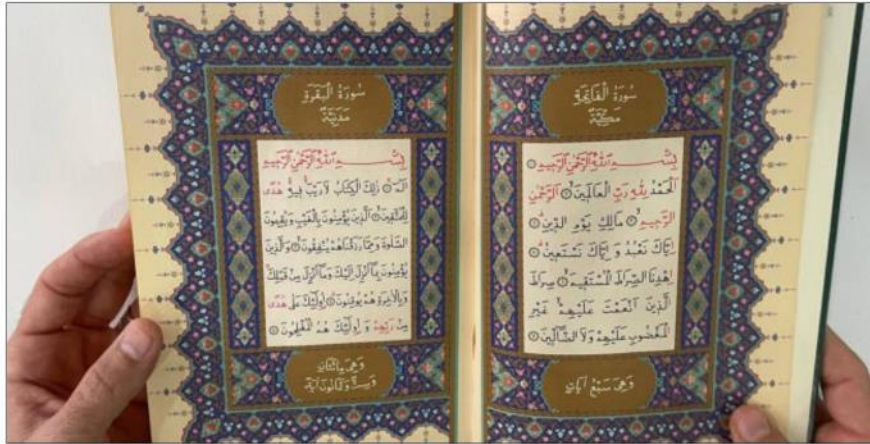 سُورَةُ الْفَاتِحَةِ
مَكِّيَّةٌ
بِسْمِ اللّٰهِ الرَّحْمٰنِ الرَّحِيمِ
اَلْحَمْدُ لِلّٰهِ رَبِّ الْعَالَمِينَ اَلرَّحْمٰنِ
الرَّحِيمِ مَالِكِ يَوْمِ الدِّينِ
اِيَّاكَ نَعْبُدُ وَ اِيَّاكَ نَسْتَعِينُ
اِهْدِنَا الصِّرَاطَ الْمُسْتَقِيمَ صِرَاطَ
الَّذِينَ اَنْعَمْتَ عَلَيْهِمْ غَيْرِ
الْمَغْضُوبِ عَلَيْهِمْ وَلَا الضَّالِّينَ
وَهِيَ سَبْعُ اٰيَاتٍ
سُورَةُ الْبَقَرَةِ
مَدَنِيَّةٌ
بِسْمِ اللّٰهِ الرَّحْمٰنِ الرَّحِيمِ
الٓمٓ ذٰلِكَ الْكِتَابُ لَا رَيْبَ فِيهِ هُدًى
لِلْمُتَّقِينَ اَلَّذِينَ يُؤْمِنُونَ بِالْغَيْبِ وَيُقِيمُونَ
الصَّلٰوةَ وَمِمَّا رَزَقْنَاهُمْ يُنْفِقُونَ وَالَّذِينَ
يُؤْمِنُونَ بِمَٓا اُنْزِلَ اِلَيْكَ وَمَٓا اُنْزِلَ مِنْ قَبْلِكَ
وَبِالْاٰخِرَةِ هُمْ يُوقِنُونَ اُو۬لٰٓئِكَ عَلٰى هُدًى
مِنْ رَبِّهِمْ وَ اُو۬لٰٓئِكَ هُمُ الْمُفْلِحُونَ
وَهِيَ مِائَتَانِ
وَسِتٌّ وَثَمَانُونَ اٰيَةً